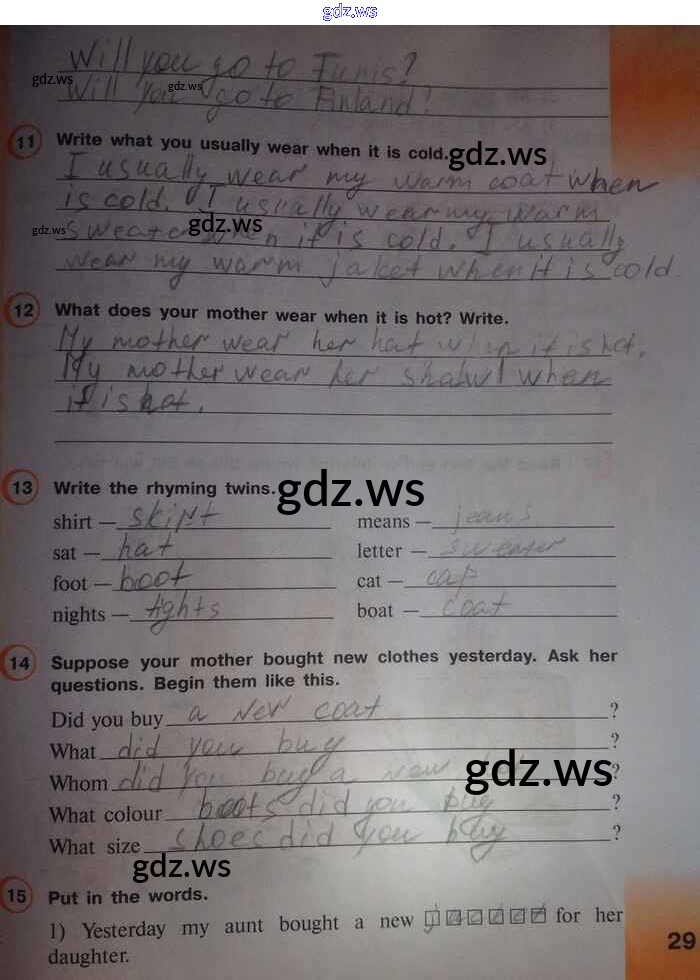 gdz.ws
Will you go to Tunis?
gdz.ws gdz.ws
Will you go to Finland?
11 Write what you usually wear when it is cold. gdz.ws
I usually wear my warm coat when
is cold. I usually wear my warm
gdz.ws gdz.ws
sweater when it is cold. I usually
wear my warm jaket when it is cold.
12 What does your mother wear when it is hot? Write.
My mother wear her hat when it is hot.
My mother wear her shawl when
it is hot.
13 Write the rhyming twins. gdz.ws
shirt — skirt means — jeans
sat — hat letter — sweater
foot — boot cat — cap
nights — tights boat — coat
14 Suppose your mother bought new clothes yesterday. Ask her
questions. Begin them like this.
Did you buy a new coat ?
What did you buy ?
Whom did you buy a new ?
gdz.ws
What colour boots did you buy ?
What size shoes did you buy ?
gdz.ws
15 Put in the words.
1) Yesterday my aunt bought a new j for her
daughter.
29